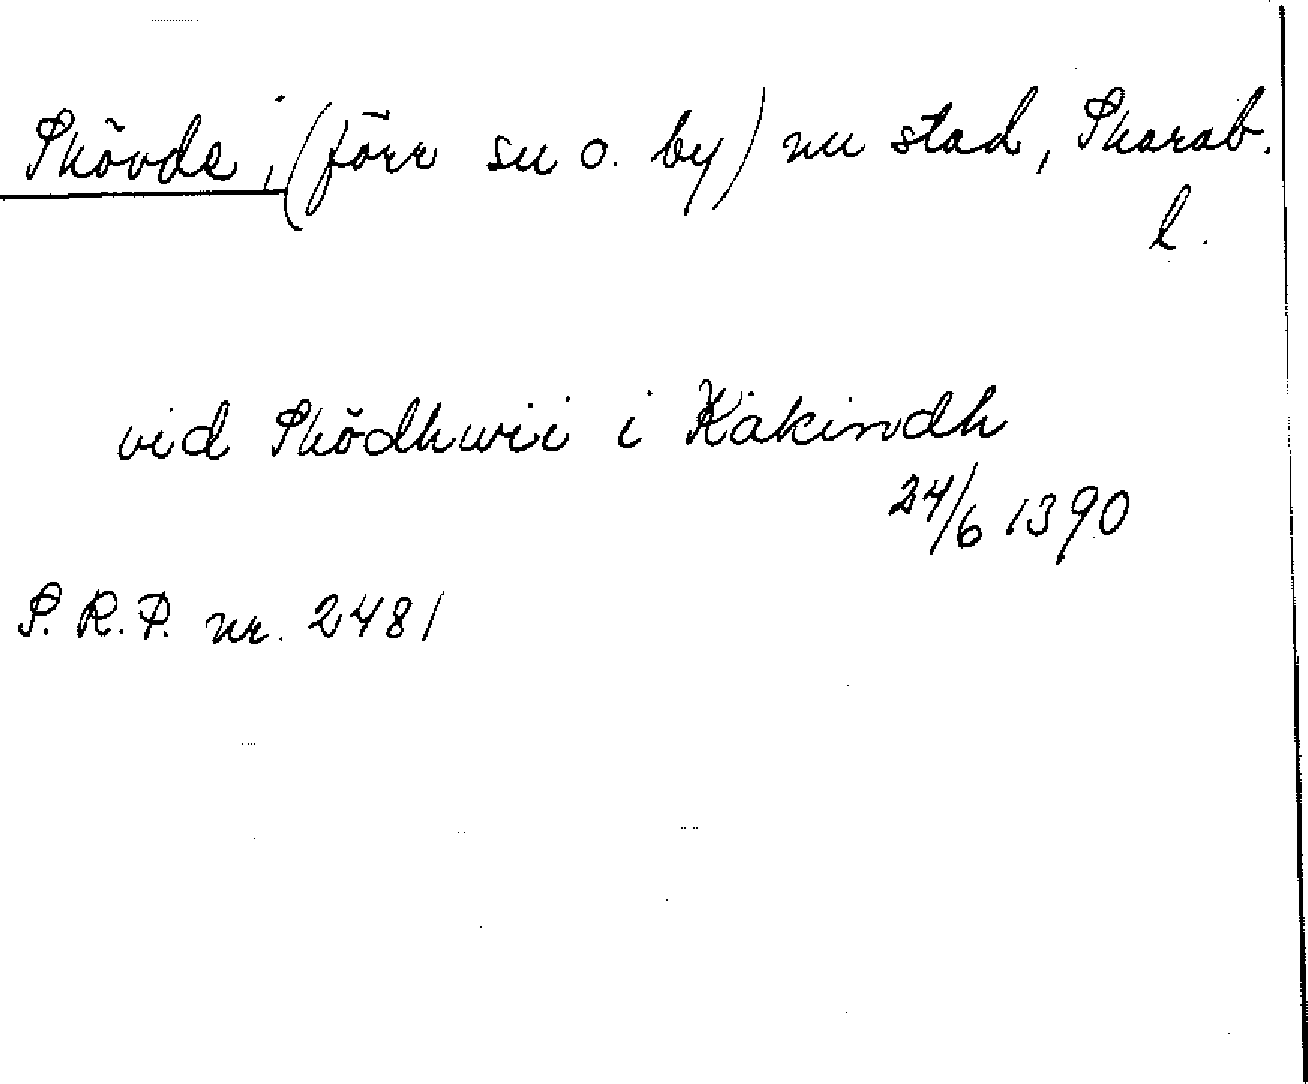 Skövde, (förr su o. by) nu stad, Skarab.
l.
vid Sködhwii i Käkindh
24/6 1390
S. R. P. nr. 2481